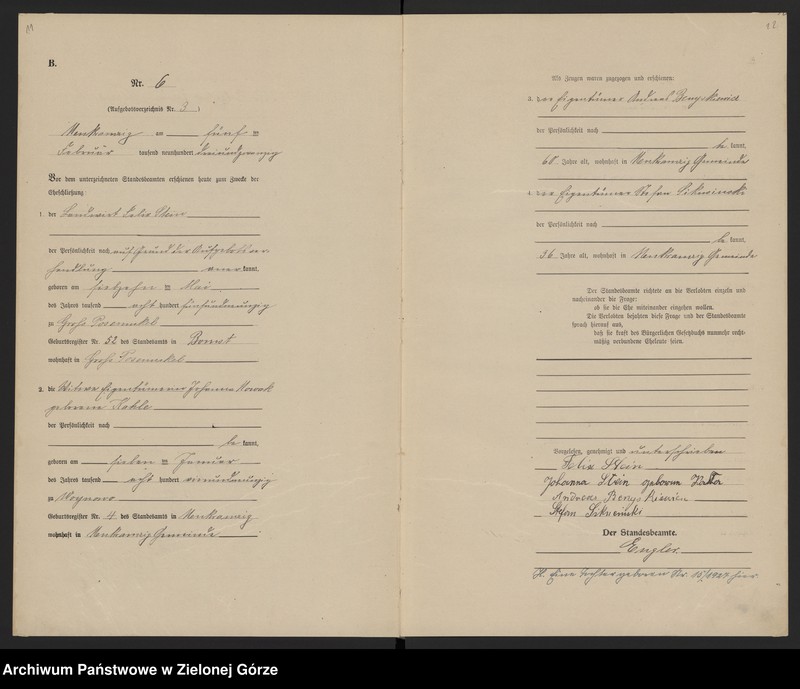 11
B.
Nr. 6
(Aufgebotsverzeichnis Nr. 3)
am fünf ten
Februar tausend neunhundert dreiundzwanzig
Vor dem unterzeichneten Standesbeamten erschienen heute zum Zwecke der
Eheschließung:
1. der Landwirt Felix Stein
der Persönlichkeit nach auf Grund der Aufgebotsver
handlung aner kannt,
geboren am ten Mai
des Jahres tausend acht hundert fünfundneunzig
zu Groß Posemukel
Geburtsregister Nr. 52 des Standesamts in Bomst
wohnhaft in Groß Posemukel
2. die Witwe Eigentümerin Johanna Nowak
geborene
der Persönlichkeit nach
be kannt,
geboren am sieben ten Januar
des Jahres tausend acht hundert vierundneunzig
zu Woynowo
Geburtsregister Nr. 4 des Standesamts in
wohnhaft in Gemeinde
12
Als Zeugen waren zugezogen und erschienen:
3. der Eigentümer Andreas
der Persönlichkeit nach
be kannt,
60 Jahre alt, wohnhaft in Gemeinde
4. der Eigentümer Stefan
der Persönlichkeit nach
be kannt,
36 Jahre alt, wohnhaft in Gemeinde
Der Standesbeamte richtete an die Verlobten einzeln und
nacheinander die Frage:
ob sie die Ehe miteinander eingehen wollen.
Die Verlobten bejahten diese Frage und der Standesbeamte
sprach hierauf aus,
daß sie kraft des Bürgerlichen Gesetzbuchs nunmehr recht-
mäßig verbundene Eheleute seien.
Vorgelesen, genehmigt und unterschrieben
Felix Stein
Johanna Stein geborene
Andreas
Stefan
Der Standesbeamte.
Engler
Eine Tochter geboren Nr. 15/1924 hier.
Archiwum Państwowe w Zielonej Górze